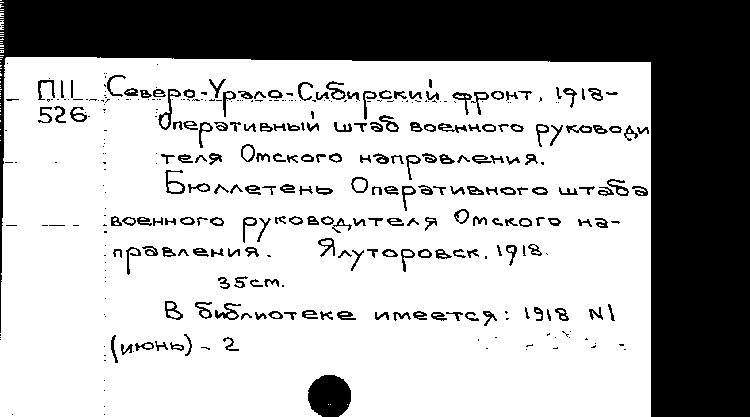 П11 Северо-Урало-Сибирский фронт, 1918-
526 Оперативный штаб военного руководи
теля Омского направления.
Бюллетень Оперативного штаба
военного руководителя Омского на-
правления. Ялуторовск, 1918.
35см.
В библиотеке имеется: 1918 N1
(июнь) - 2